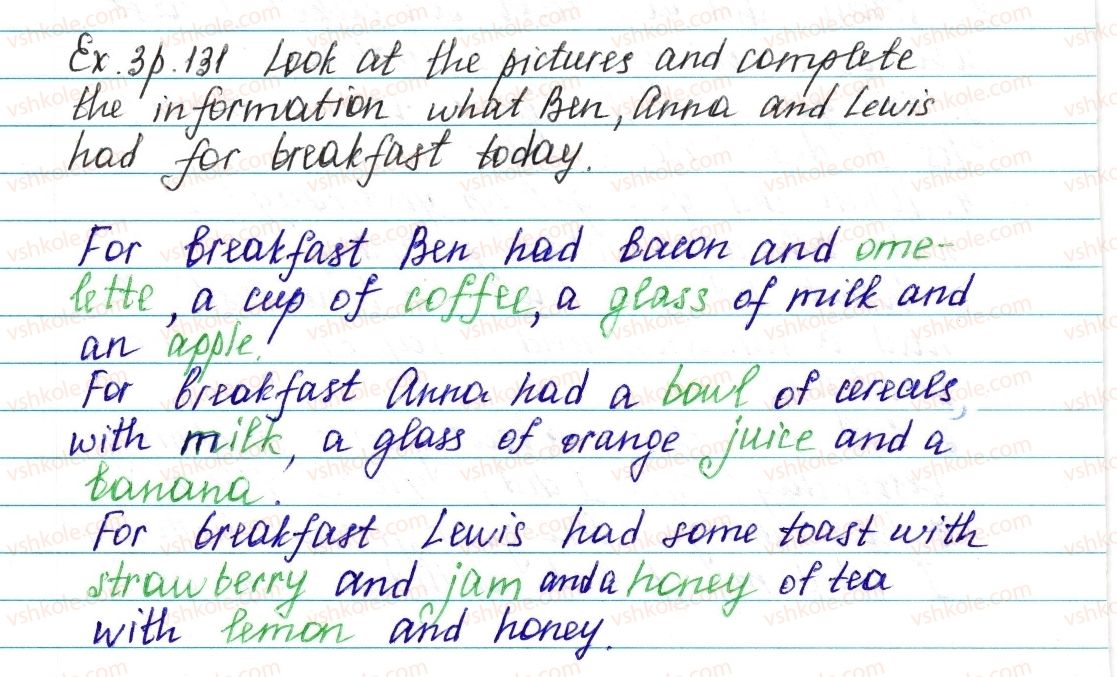 Ex. 3p. 131 Look at the pictures and complete
the information what Ben, Anna and Lewis
had for breakfast today.
For breakfast Ben had bacon and ome-
lette, a cup of coffee, a glass of milk and
an apple.
For breakfast Anna had a bowl of cereals,
with milk, a glass of orange juice and a
banana.
For breakfast Lewis had some toast with
strawberry and jam and a honey of tea
with lemon and honey.